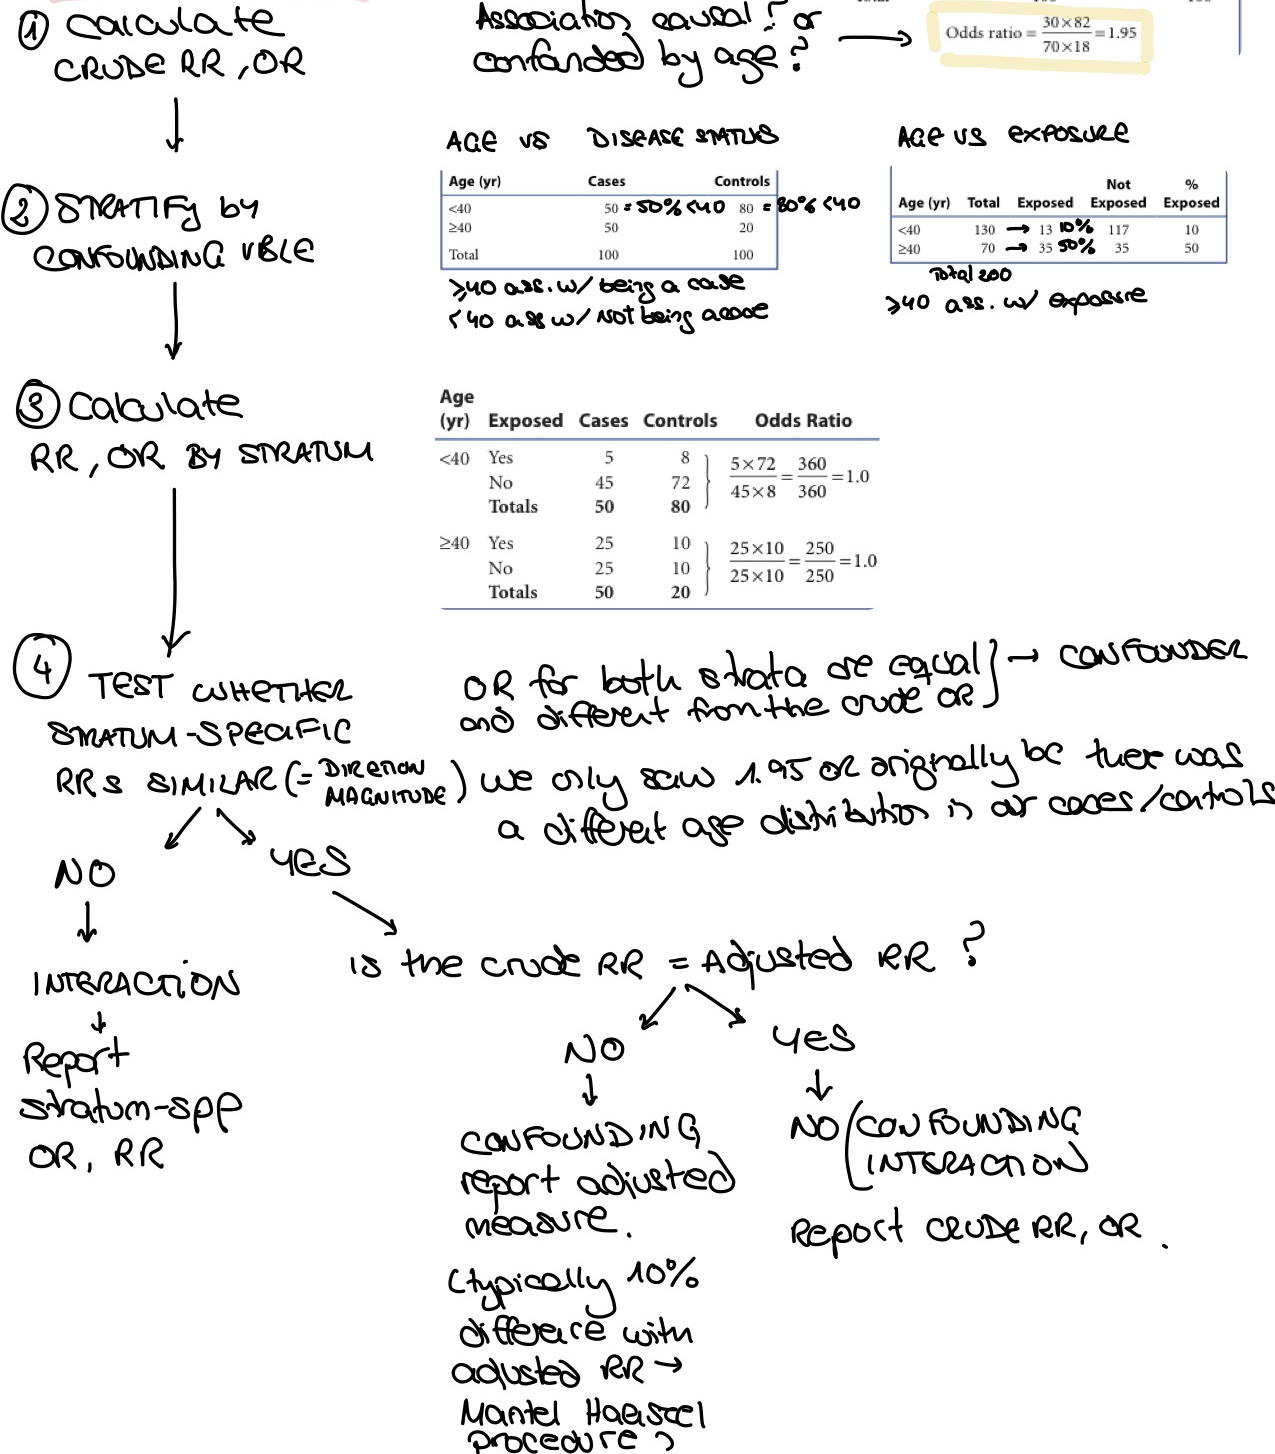 ① Calculate
CRUDE RR, OR
Association causal? or
confounded by age?
Odds ratio = 30×82 / 70×18 = 1.95
② STRATIFY by
CONFOUNDING VBLE
AGE VS DISEASE STATUS
Age (yr) Cases Controls
<40 50 = 50% <40 80 = 80% <40
≥40 50 20
Total 100 100
≥40 ass. w/ being a case
<40 ass w/ not being a case
AGE VS EXPOSURE
Age (yr) Total Exposed Not Exposed % Exposed
<40 130 → 13 10% 117 10
≥40 70 → 35 50% 35 50
Total 200
≥40 ass. w/ exposure
③ Calculate
RR, OR BY STRATUM
Age
(yr) Exposed Cases Controls Odds Ratio
<40 Yes 5 8
No 45 72
Totals 50 80
5×72 / 45×8 = 360 / 360 = 1.0
≥40 Yes 25 10
No 25 10
Totals 50 20
25×10 / 25×10 = 250 / 250 = 1.0
④ TEST WHETHER
STRATUM-SPECIFIC
RRs SIMILAR (= DIRETION MAGNITUDE)
OR for both strata are equal
and different from the crude OR
→ CONFOUNDER
we only saw 1.95 OR originally bc there was
a different age distribution in our cases/controls
NO
YES
INTERACTION
Report
stratum-spp
OR, RR
is the crude RR = Adjusted RR ?
NO
YES
CONFOUNDING
report adjusted
measure.
(typically 10%
difference with
adjusted RR →
Mantel
procedure)
NO (CONFOUNDING
INTERACTION
Report CRUDE RR, OR.